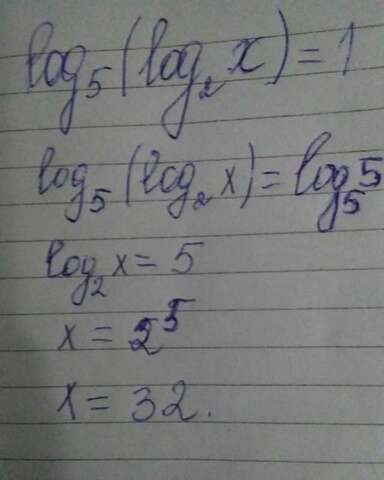 log₅(log₂x)=1
log₅(log₂x)=log₅5
log₂x=5
x=2⁵
x=32.